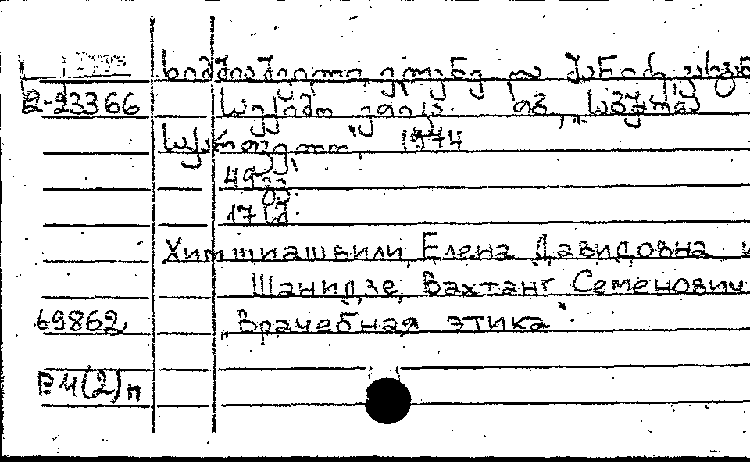 ხიმშიაშვილი ელენე და შანიძე ვახტან
2-23366 საექიმო ეთიკა. თბ., „საბჭოთა
საქართველო", 1974
49 გვ.
17 სმ.
Химшиашвили, Елена Давидовна и
Шанидзе, Вахтанг Семенович
69862 „Врачебная этика"